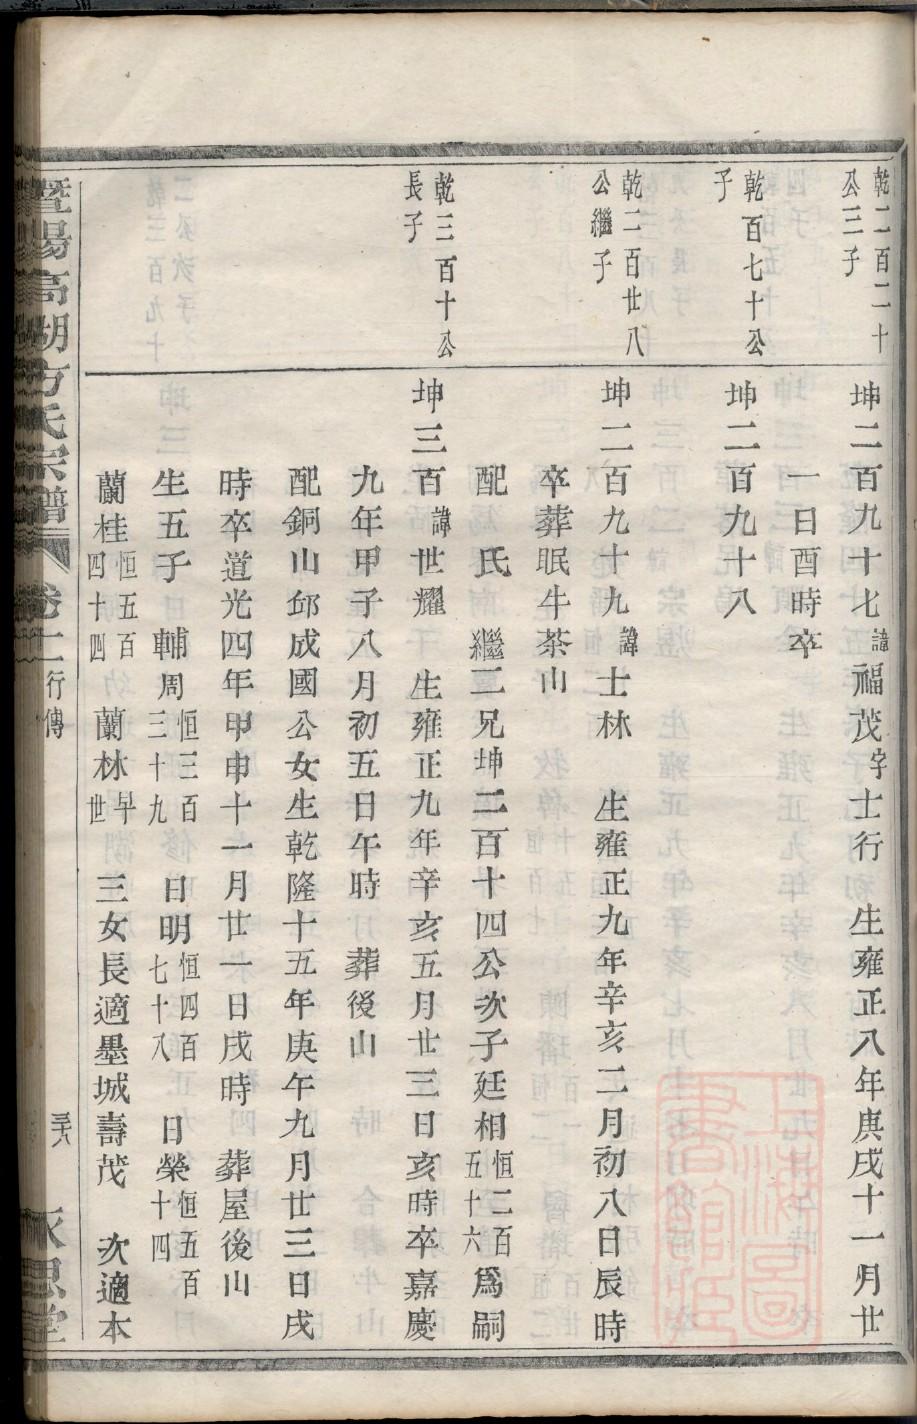 乾二百二十
公三子
坤二百九十七諱福茂字士行　生雍正八年庚戌十一月廿
一日酉時卒
乾百七十公
子
坤二百九十八
乾二百廿八
公繼子
坤二百九十九諱士林　生雍正九年辛亥二月初八日辰時
卒葬眠牛茶山
配　氏　繼三兄坤二百十四公次子廷相恒二百五十六爲嗣
乾三百十公
長子
坤三百諱世耀　生雍正九年辛亥五月廿三日亥時卒嘉慶
九年甲子八月初五日午時　葬後山
配銅山邱成國公女生乾隆十五年庚午九月廿三日戌
時卒道光四年甲申十一月廿一日戌時　葬屋後山
生五子　輔周恒三百三十九　日明恒四百七十八　日榮恒五百十四
蘭桂恒五百四十四　蘭林早世　三女長適墨城壽茂　次適本
暨陽高湖方氏宗譜　卷十一　行傳　三十八　永思堂